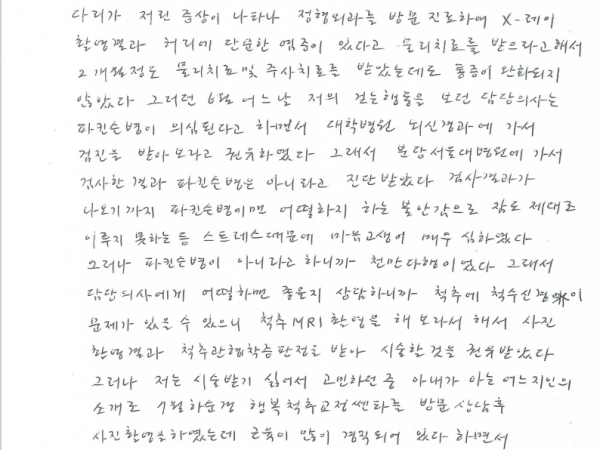 다리가 저린 증상이 나타나 정형외과를 방문 진료하여 X-레이
촬영결과 허리에 단순한 염증이 있다고 물리치료를 받으라고해서
2개월정도 물리치료및 주사치료를 받았는데도 통증이 완화되지
않았다 그러던 6월 어느날 저의 걷는행동을 보던 담당의사는
파킨슨병이 의심된다고 하면서 대학병원 뇌신경과에 가서
검진을 받아보라고 권유하였다 그래서 분당서울대병원에 가서
검사한 결과 파킨슨병은 아니라고 진단받았다 검사결과가
나오기까지 파킨슨병이면 어떨하지 하는 불안감으로 잠도 제대로
이루지 못하는등 스트레스때문에 마음고생이 매우 심하였다
그러나 파킨슨병이 아니라고 하니까 천만다행이었다 그래서
담당의사에게 어떨하면 좋을지 상담하니까 척추에 척수신경이
문제가 있을 수 있으니 척추MRI촬영을 해 보라서 해서 사진
촬영결과 척추관협착증판정을 받아 시술할것을 권유받았다
그러나 저는 시술받기 싫어서 고민하던 중 아내가 아는 어느지인의
소개로 7월하순경 행복척추교정쎈타를 방문 상담후
사진촬영을하였는데 근육이 많이 경직되어 있다 하면서